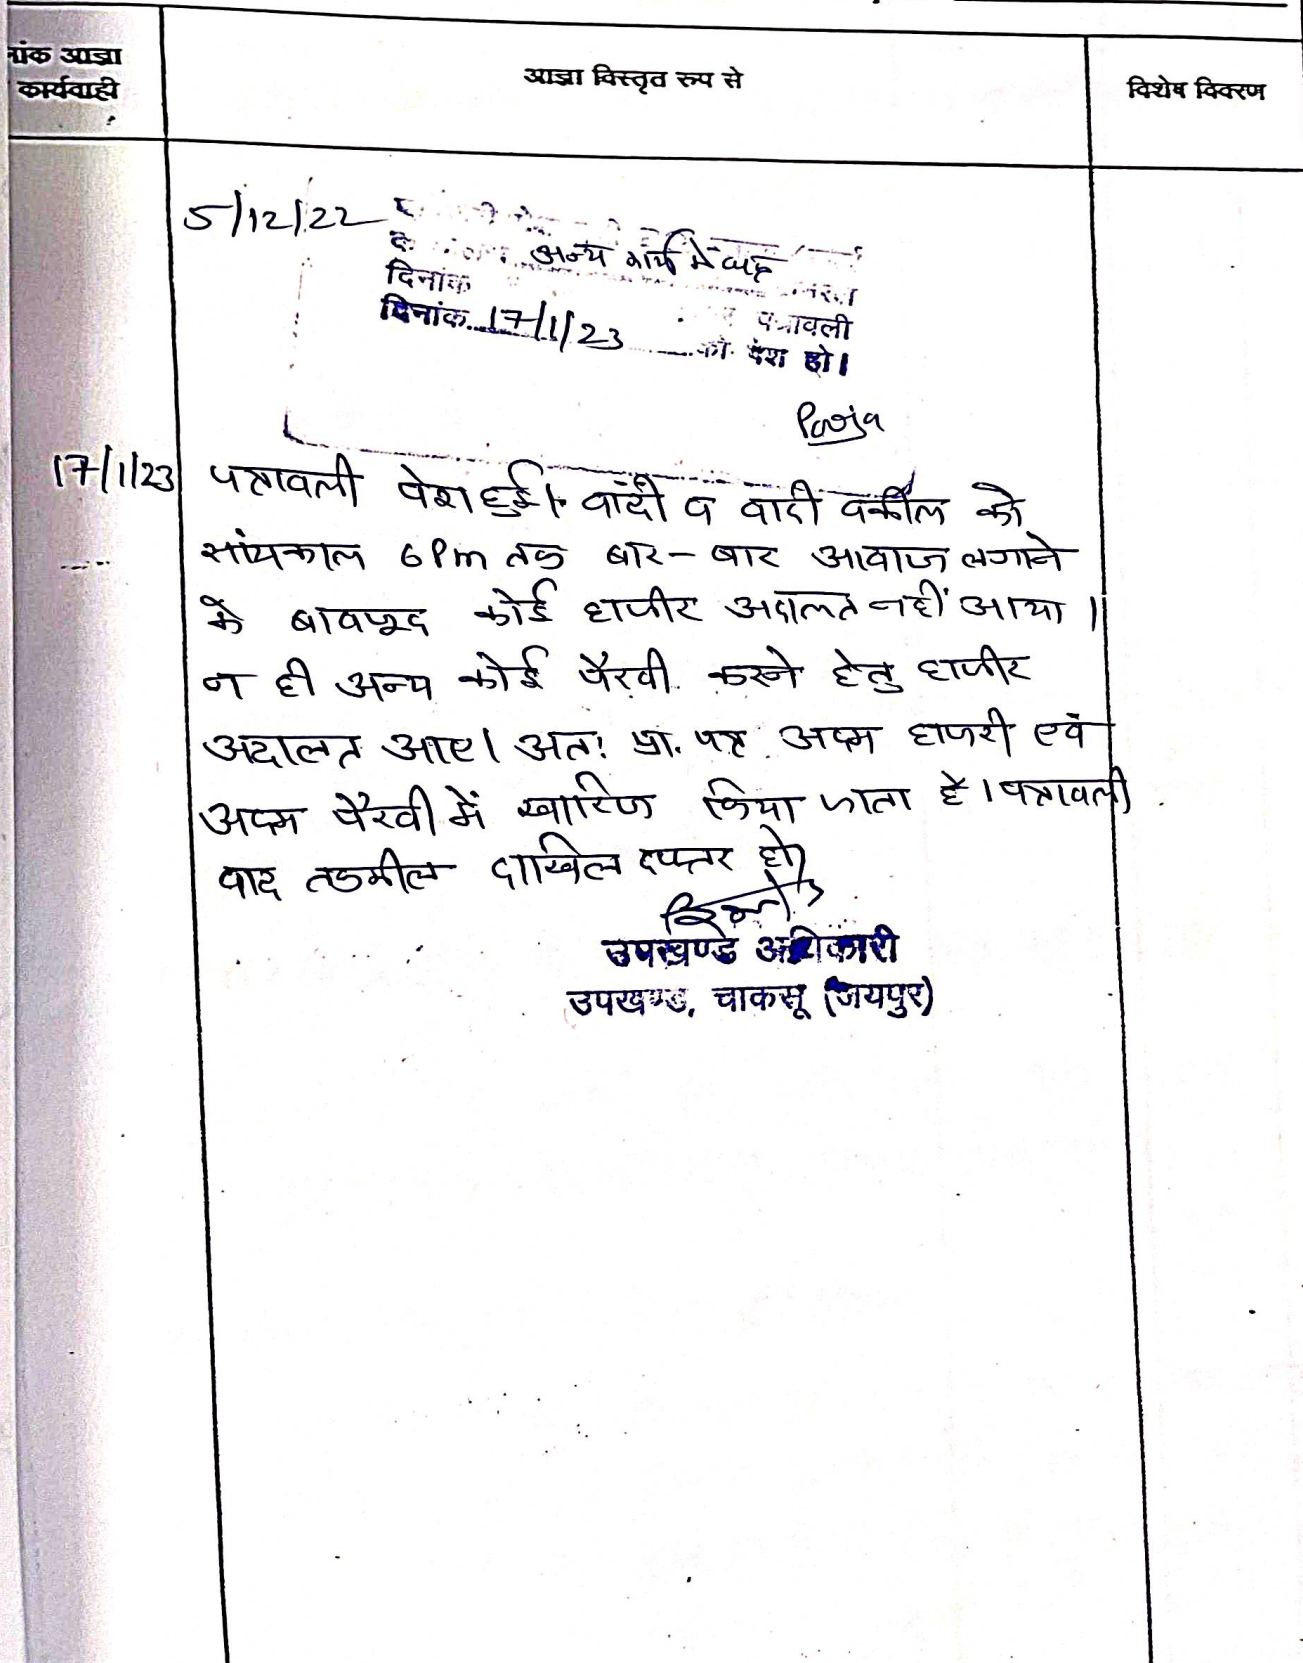 आज्ञा
कार्यवाही
आज्ञा विस्तृत रूप से
विशेष विवरण
5/12/22
अन्य कार्य में व्यस्त
दिनांक
पत्रावली
दिनांक 17/1/23 को पेश हो।
Pooja
17/1/23 पत्रावली पेश हुई। वादी व वादी वकील को
सांयकाल 6 Pm तक बार-बार आवाज लगाने
के बावजूद कोई हाजीर अदालत नहीं आया।
न ही अन्य कोई पैरवी करने हेतु हाजीर
अदालत आए। अतः प्रा. पत्र अदम हाजरी एवं
अदम पैरवी में खारिज किया जाता है। पत्रावली
वाद तकमील दाखिल दफ्तर हो
उपखण्ड अधिकारी
उपखण्ड, चाकसू (जयपुर)